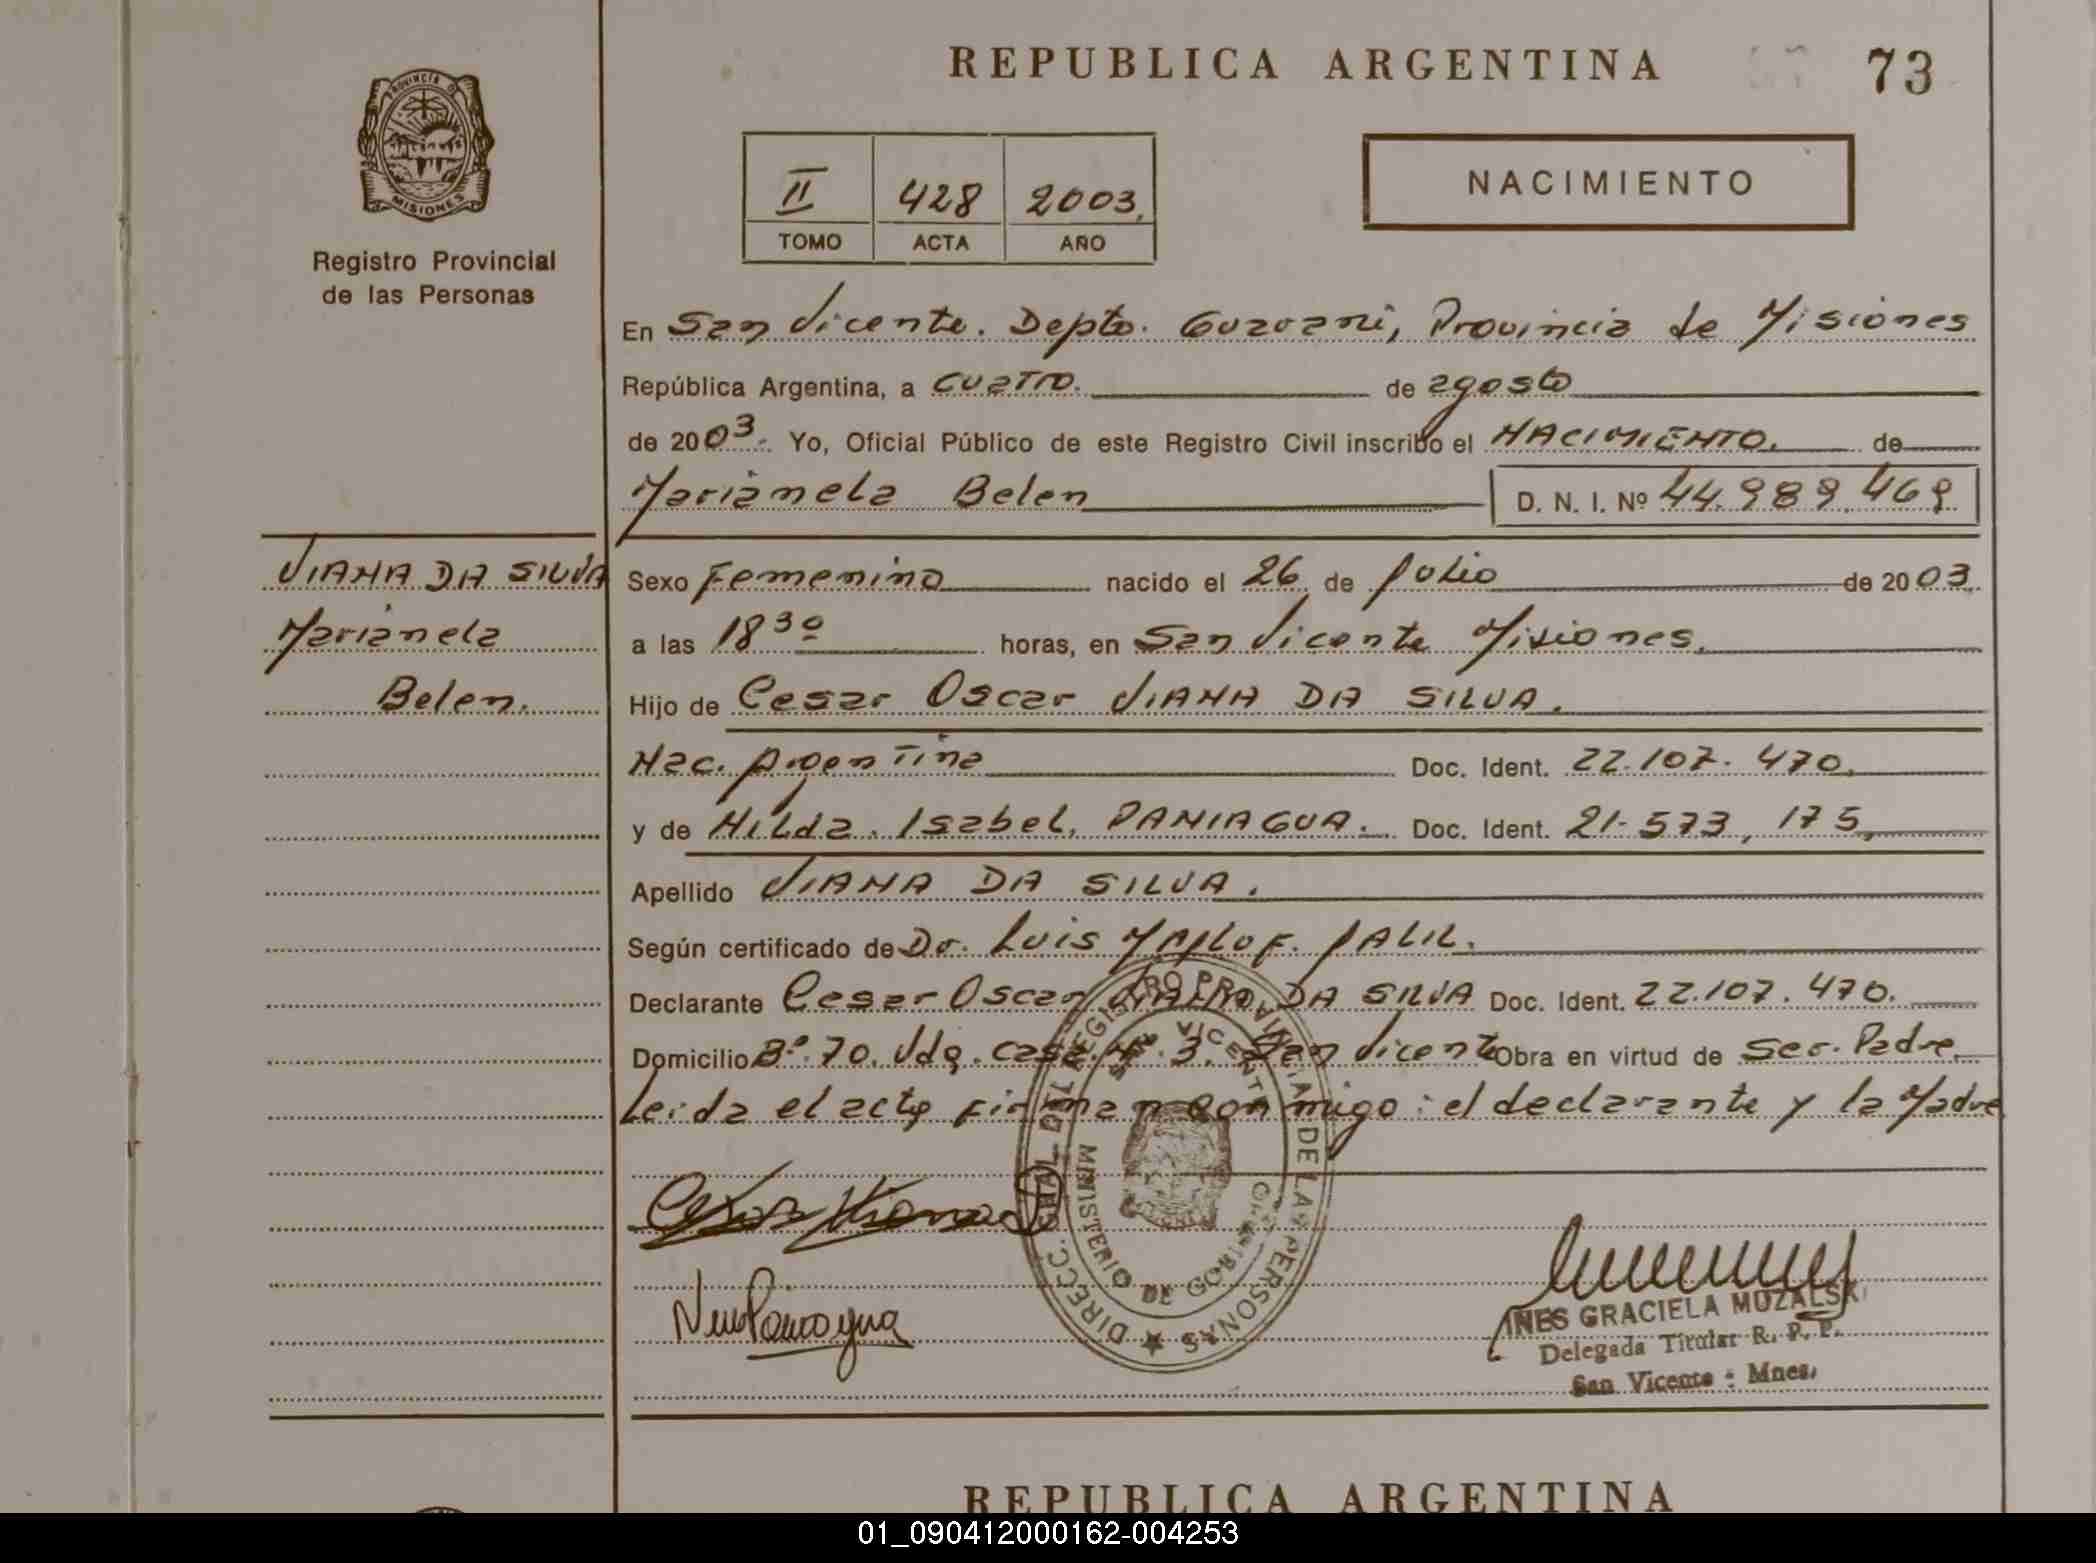 REPUBLICA ARGENTINA 73
PROVINCIA DE MISIONES
Registro Provincial
de las Personas
II 428 2003
TOMO ACTA AÑO
NACIMIENTO
En San Vicente. Depto. Guarani, Provincia de Misiones
República Argentina, a cuatro. de agosto
de 2003. Yo, Oficial Público de este Registro Civil inscribo el NACIMIENTO. de
Marianela Belen D. N. I. Nº 44.989.469
VIANA DA SILVA
Marianela
Belen.
Sexo Femenino nacido el 26 de Julio de 2003
a las 18 30 horas, en San Vicente Misiones.
Hijo de Cesar Oscar VIANA DA SILVA.
Nac. Argentina Doc. Ident. 22.107.470.
y de Hilda. Isabel. PANIAGUA. Doc. Ident. 21.573,175,
Apellido VIANA DA SILVA.
Según certificado de Dr. Luis JALIL.
Declarante Cesar Oscar VIANA DA SILVA Doc. Ident. 22.107.470.
Domicilio Bº.70.Vdg.casa.Nº.3. San Vicente Obra en virtud de ser. Padre.
Leida el acta firman conmigo: el declarante y la Madre
DIRECC. GRAL. DEL REGISTRO PROVINCIAL DE LAS PERSONAS
SAN VICENTE
MINISTERIO DE GOBIERNO
INES GRACIELA MUZALSKI
Delegada Titular R. P. P.
San Vicente : Mnes.
REPUBLICA ARGENTINA
01_090412000162-004253